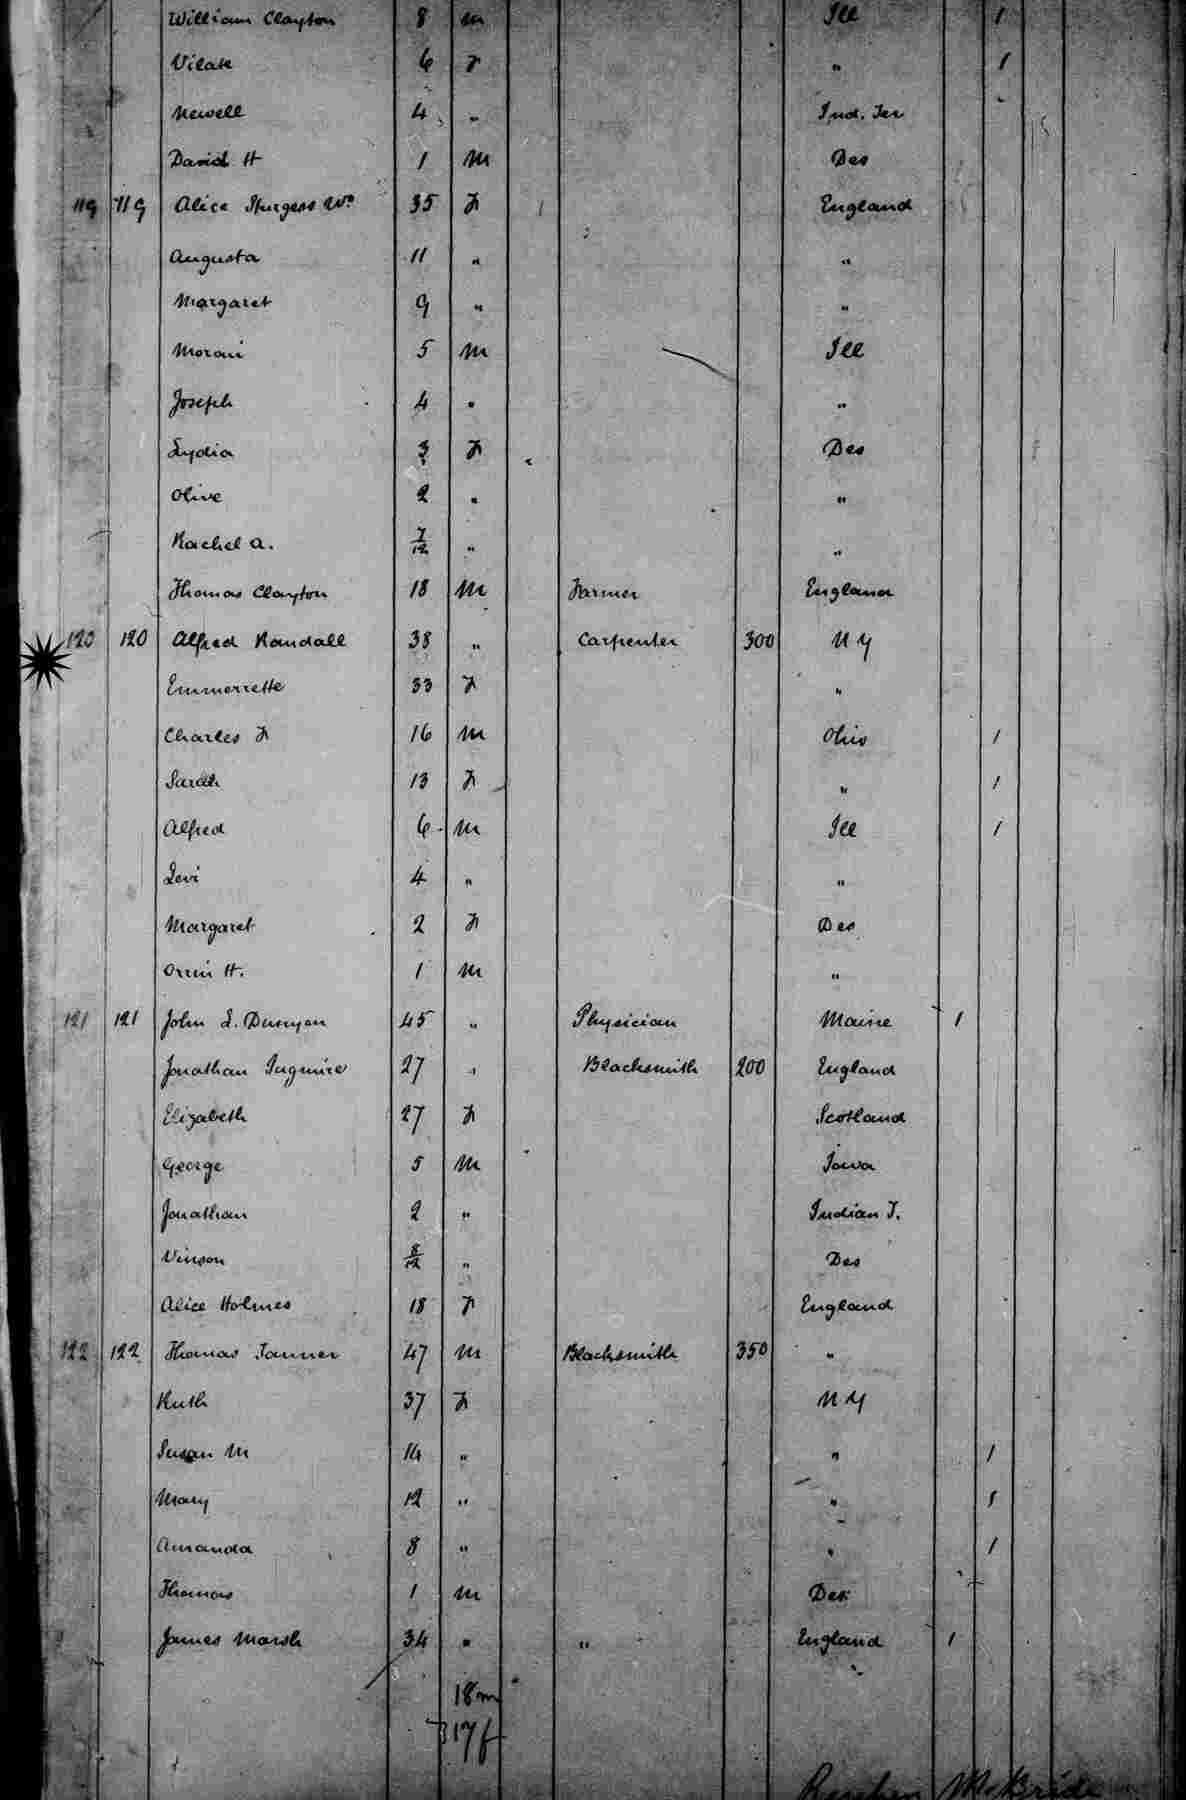 William Clayton 8 m Ill 1
Vilate 6 F " 1
Newell 4 " Ind. Ter
David H 1 M Des
119 119 Alice Sturgess Wo 35 F England
Augusta 11 " "
Margaret 9 " "
Moroni 5 M Ill
Joseph 4 " "
Lydia 3 F Des
Olive 2 " "
Rachel A. 7/12 " "
Thomas Clayton 18 M Farmer England
120 120 Alfred Randall 38 " Carpenter 300 N Y
Emmerrette 33 F "
Charles F 16 M Ohio 1
Sarah 13 F " 1
Alfred 6 M Ill 1
Levi 4 " "
Margaret 2 F Des
Orrin H. 1 M "
121 121 John L. Dunyon 45 " Physician Maine 1
Jonathan 27 " Blacksmith 200 England
Elizabeth 27 F Scotland
George 5 M Iowa
Jonathan 2 " Indian T.
Vinson 8/12 " Des
Alice Holmes 18 F England
122 122 Thomas Tanner 47 M Blacksmith 350 "
Ruth 37 F N Y
Susan M 14 " " 1
Mary 12 " " 1
Amanda 8 " " 1
Thomas 1 M Des
James Marsh 34 " " England 1
18 m
17 f
Reuben McBride